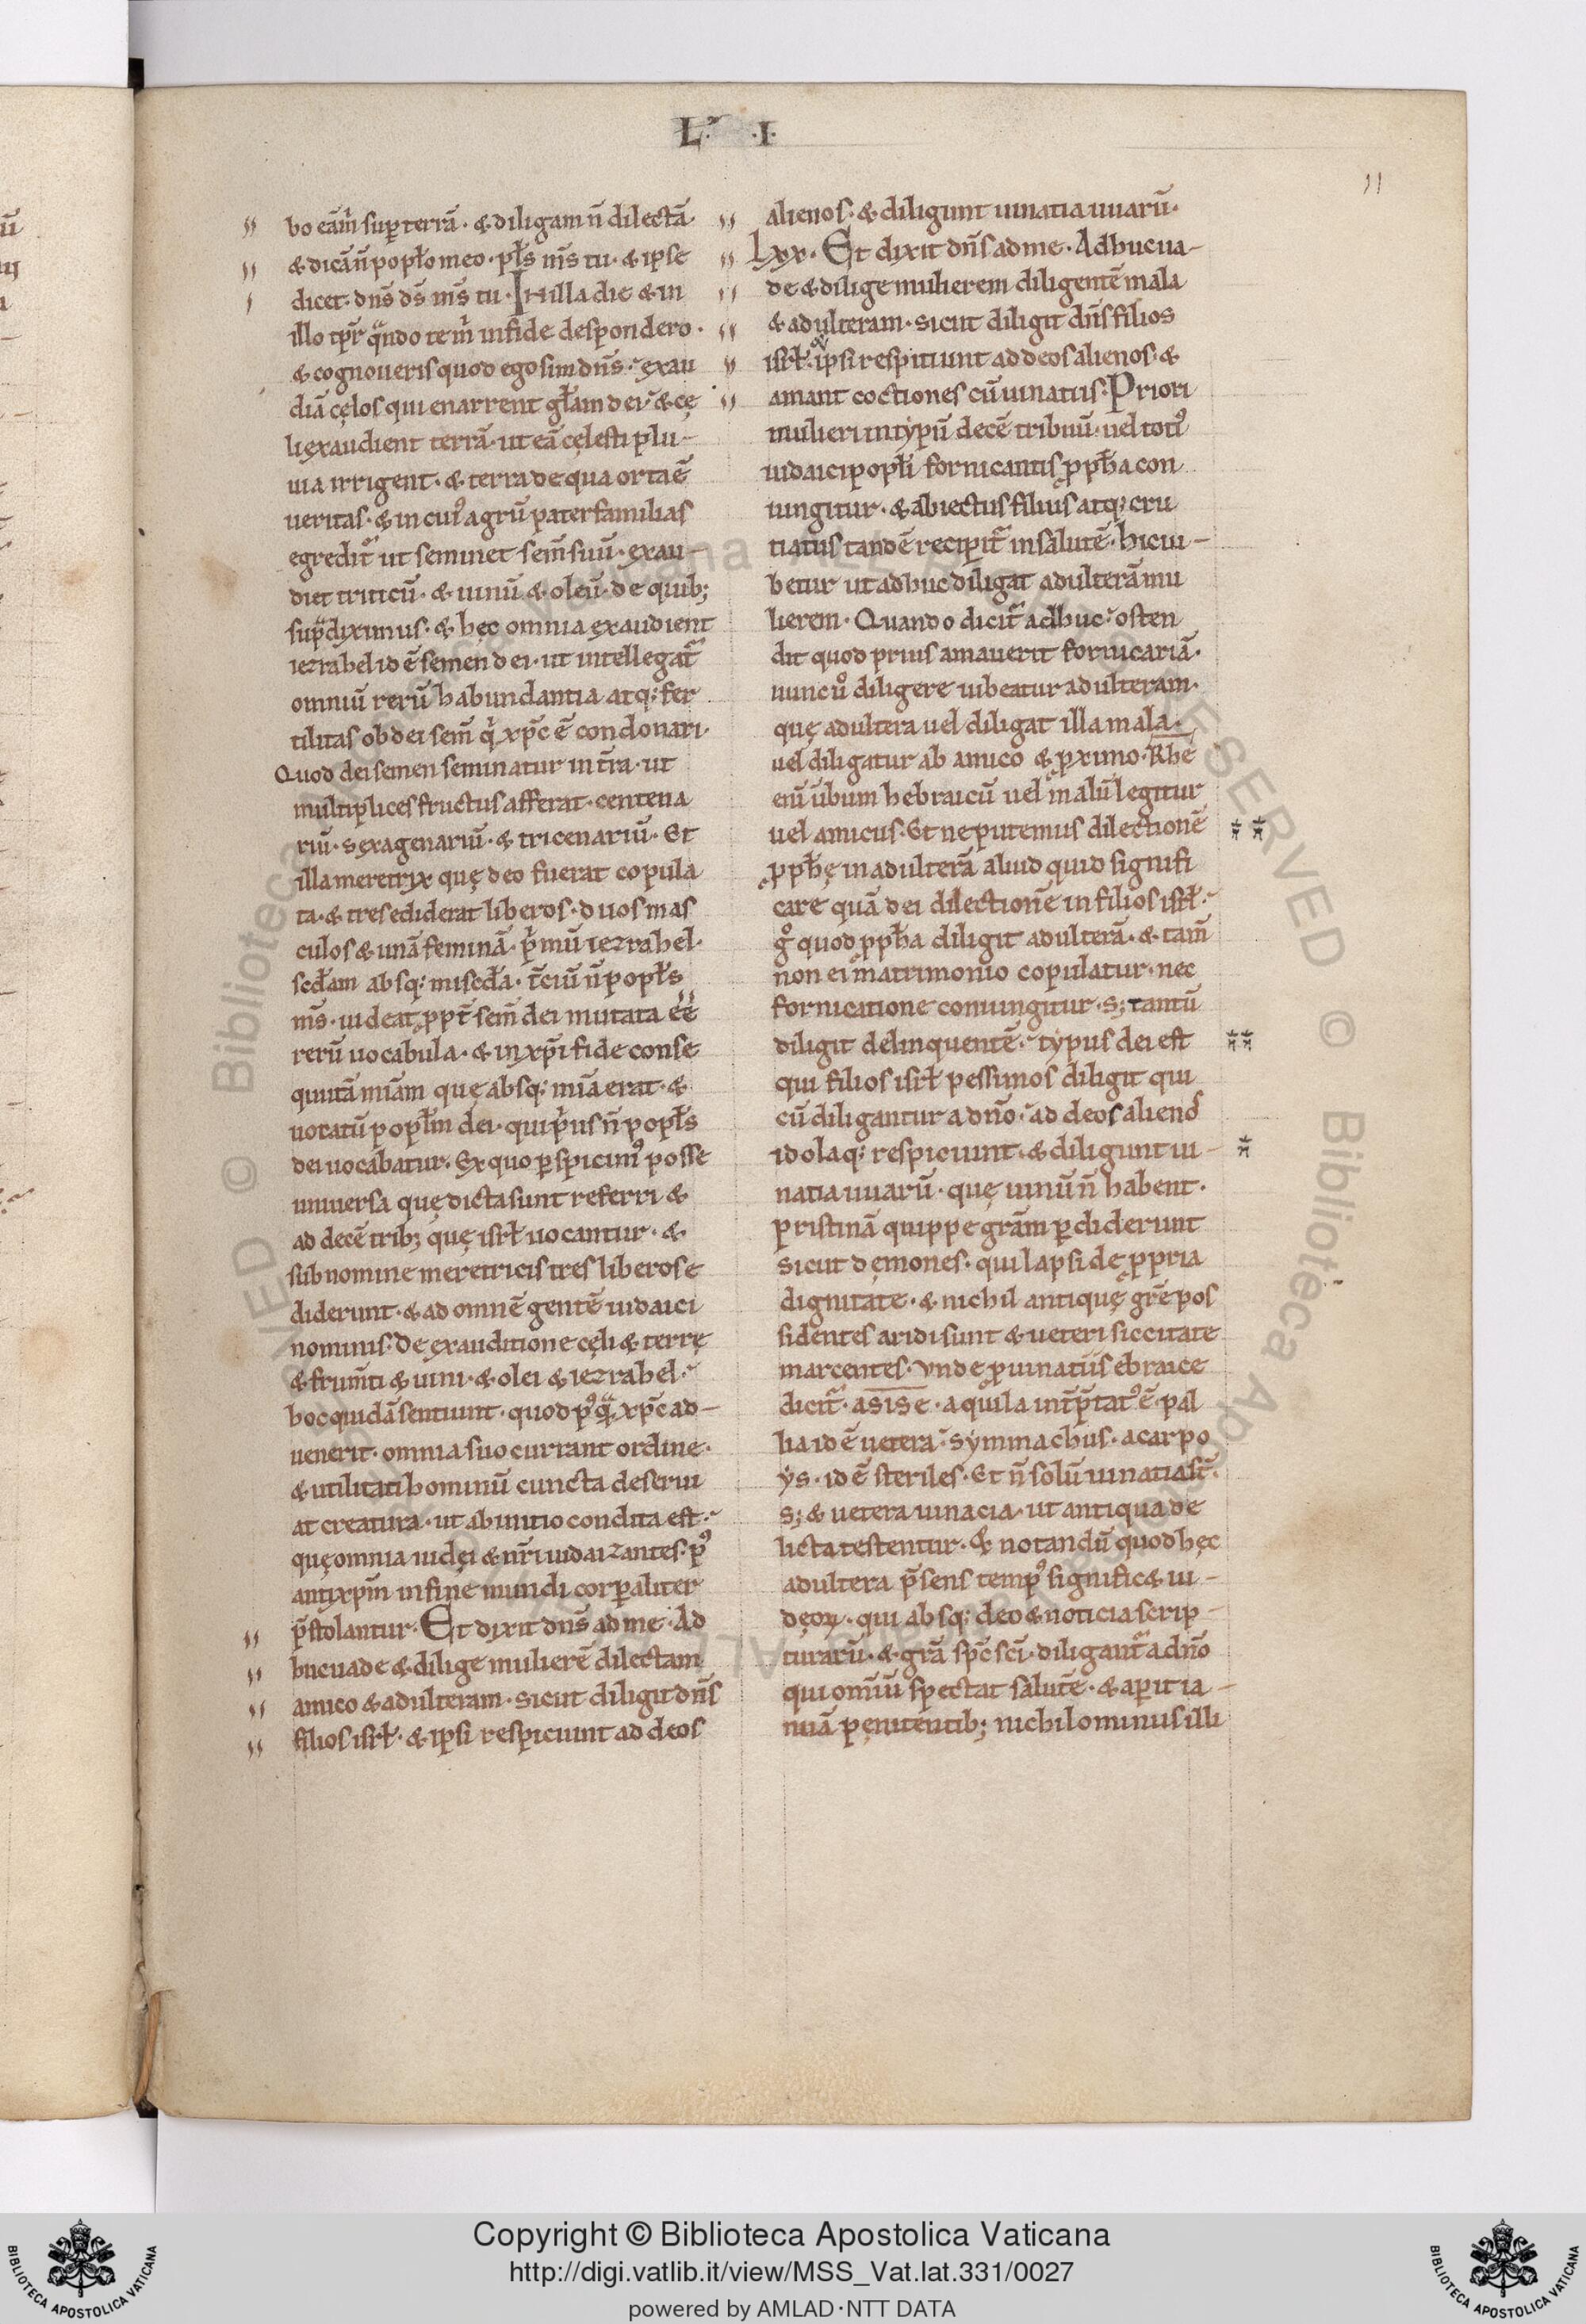 L. .I.
11
bo eam̄ sup terrā. & diligam n̄ dilectā.
& dicā n̄ poplo meo. pls ms tu. & ipse
dicet. dn̄s ds ms tu. In illa die & in
illo tpr qndo tem̄ in fide despondero.
& cognoueris quod ego sim dn̄s. exau
diā cęlos qui enarrent głam dei. & cę
li exaudient terrā. ut eā cęlesti plu-
uia irrigent. & terra de qua orta ē
ueritas. & in cui' agrū paterfamilias
egredit ut seminet sem̄ suū. exau-
diet triticū. & uinū & oleū. de quib;
supdiximus. & hęc omnia exaudient
iezrahel id ē semen dei. ut intellegat
omniū rerū habundantia atq; fer
tilitas ob dei sem̄ q xpc ē condonari.
Quod dei semen seminatur in tra. ut
multiplices fructus afferat. centena
riū. sexagenariū. & tricenariū. Et
illa meretrix quę deo fuerat copula
ta. & tres ediderat liberos. duos mas
culos & unā feminā. pmū iezrahel.
scdam absq; miscda. tciū n̄ popls
ms. uideat ppt sem̄ dei mutata ēē
rerū uocabula. & in xpi fide conse
quutā miam quę absq; mia erat. &
uocatū poplm dei. qui prius n̄ popls
dei uocabatur. Ex quo pspicim' posse
uniuersa quę dicta sunt referri &
ad decē trib; quę isrl uocantur. &
sub nomine meretricis tres liberos e
diderunt. & ad omnē gentē iudaici
nominis. De exauditione cęli & terrę
& frum̄ti & uini. & olei & iezrahel.
hoc quidā sentiunt. quod p' q xpc ad-
uenerit. omnia suo currant ordine.
& utilitati hominū cuncta deserui
at creatura. ut ab initio condita est.
quę omnia iudęi & nri iudaizantes. p'
antixpm in fine mundi corpaliter
pstolantur. Et dixit dn̄s ad me. Ad
huc uade & dilige mulierē dilectam
amico & adulteram. sicut diligit dn̄s
filios isrl. & ipsi respiciunt ad deos
alienos. & diligunt uinatia uuarū.
lxx. Et dixit dn̄s ad me. Adhuc ua-
de & dilige mulierem diligentē mala
& adulteram. sicut diligit dn̄s filios
isrl. & ipsi respitiunt ad deos alienos. &
amant coctiones cū uinatiis. Priori
mulieri in typū decē tribuū. uel toti'
iudaici popli fornicantis ppha con
iungitur. & abiectus filius atq; cru
tiatus tandē recipit in salutē. hic iu-
betur ut adhuc diligat adulterā mu
lierem. Quando dicit adhuc. osten
dit quod prius amauerit fornicariā.
nunc u diligere iubeatur adulteram.
quę adultera uel diligat illa mala.
uel diligatur ab amico & pximo. Rhe
eni ubum hebraicū uel malū legitur
uel amicus. Et ne putemus dilectionē
pphę in adulterā aliud quid signifi
care quā dei dilectionē in filios isrl.
g quod ppha diligit adulterā. & tam̄
non ei matrimonio copulatur. nec
fornicatione coniungitur. s; tantū
diligit delinquentē. typus dei est
qui filios isrl pessimos diligit qui
cū diligantur a dno. ad deos alienos
idolaq; respiciunt. & diligunt ui-
natia uuarū. quę uinū n̄ habent.
pristinā quippe gram pdiderunt
sicut dęmones. qui lapsi de ppria
dignitate. & nichil antiquę grē pos
sidentes aridi sunt & ueteri siccitate
marcentes. Vnde p uinatiis ebraice
dicit. asise. aquila intptat' ē. pal
lia id ē uetera. symmachus. acarpo
ys. id ē steriles. Et n̄ solū uinatia st.
s; & uetera uinacia. ut antiqua de
licta testentur. & notandū quod hęc
adultera psens temp' significat iu-
dęory. qui absq; deo & noticia scrip-
turarū. & gra spc sci. diligant a dno
qui omiū spectat salutē. & apit ia-
nuā pęnitentib; nichilominus illi
Copyright © Biblioteca Apostolica Vaticana
http://digi.vatlib.it/view/MSS_Vat.lat.331/0027
powered by AMLAD·NTT DATA
BIBLIOTECA APOSTOLICA VATICANA
BIBLIOTECA APOSTOLICA VATICANA